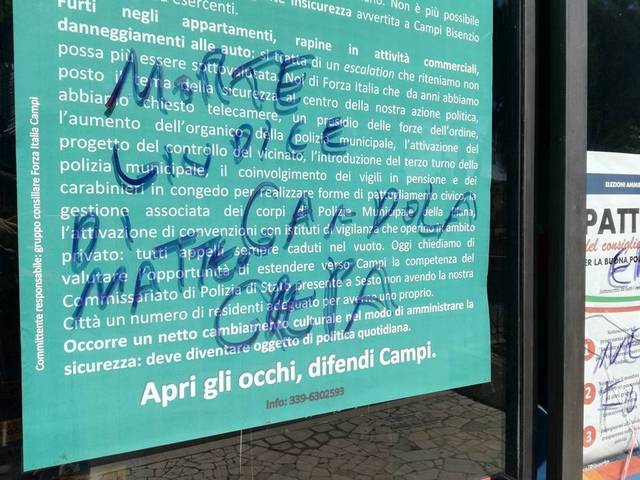 esercenti.
insicurezza avvertita a Campi Bisenzio
Non è più possibile
Furti negli appartamenti, rapine in attività commerciali,
danneggiamenti alle auto: si tratta di un escalation che riteniamo non
possa più essere sottovalutata. Noi di Forza Italia che da anni abbiamo
posto il tema della sicurezza al centro della nostra azione politica,
abbiamo chiesto telecamere, un presidio delle forze dell'ordine,
l'aumento dell'organico della polizia municipale, l'attivazione del
progetto del controllo del vicinato, l'introduzione del terzo turno della
polizia municipale, il coinvolgimento dei vigili in pensione e dei
carabinieri in congedo per realizzare forme di pattugliamento civico, la
gestione associata dei corpi di Polizia Municipale della Piana,
l'attivazione di convenzioni con istituti di vigilanza che operino in ambito
privato: tutti appelli sempre caduti nel vuoto. Oggi chiediamo di
valutare l'opportunità di estendere verso Campi la competenza del
Commissariato di Polizia di Stato presente a Sesto non avendo la nostra
Città un numero di residenti adeguato per averne uno proprio.
Occorre un netto cambiamento culturale nel modo di amministrare la
sicurezza: deve diventare oggetto di politica quotidiana.
Apri gli occhi, difendi Campi.
Info: 339-6302593
Committente responsabile: gruppo consiliare Forza Italia Campi
MORTE
GIUDICE
DI
MATTEGA
CRETA
ELEZIONI
PATT
del consigli
PER LA BUONA POL
1
2
3